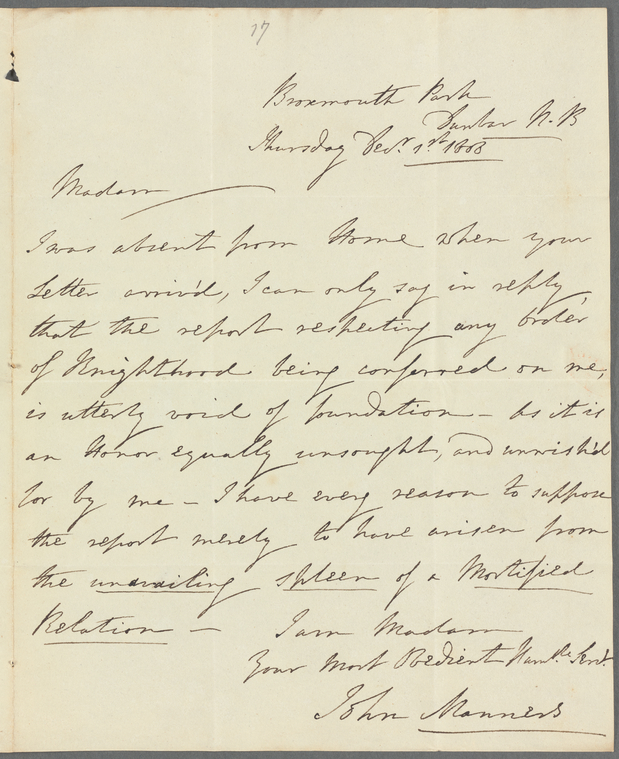 17
Broxmouth Park
Dunbar N.B
Thursday Decr. 1st 1808
Madam
I was absent from Home when your
Letter arriv'd, I can only say in reply,
that the report respecting any order
of Knighthood being conferred on me,
is utterly void of foundation - As it is
an Honor equally unsought, and unwish'd
for by me - I have every reason to suppose
the report merely to have arisen from
the unavailing spleen of a Mortified
Relation -
I am Madam
Your Most Obedient Humble Servt.
John Manners